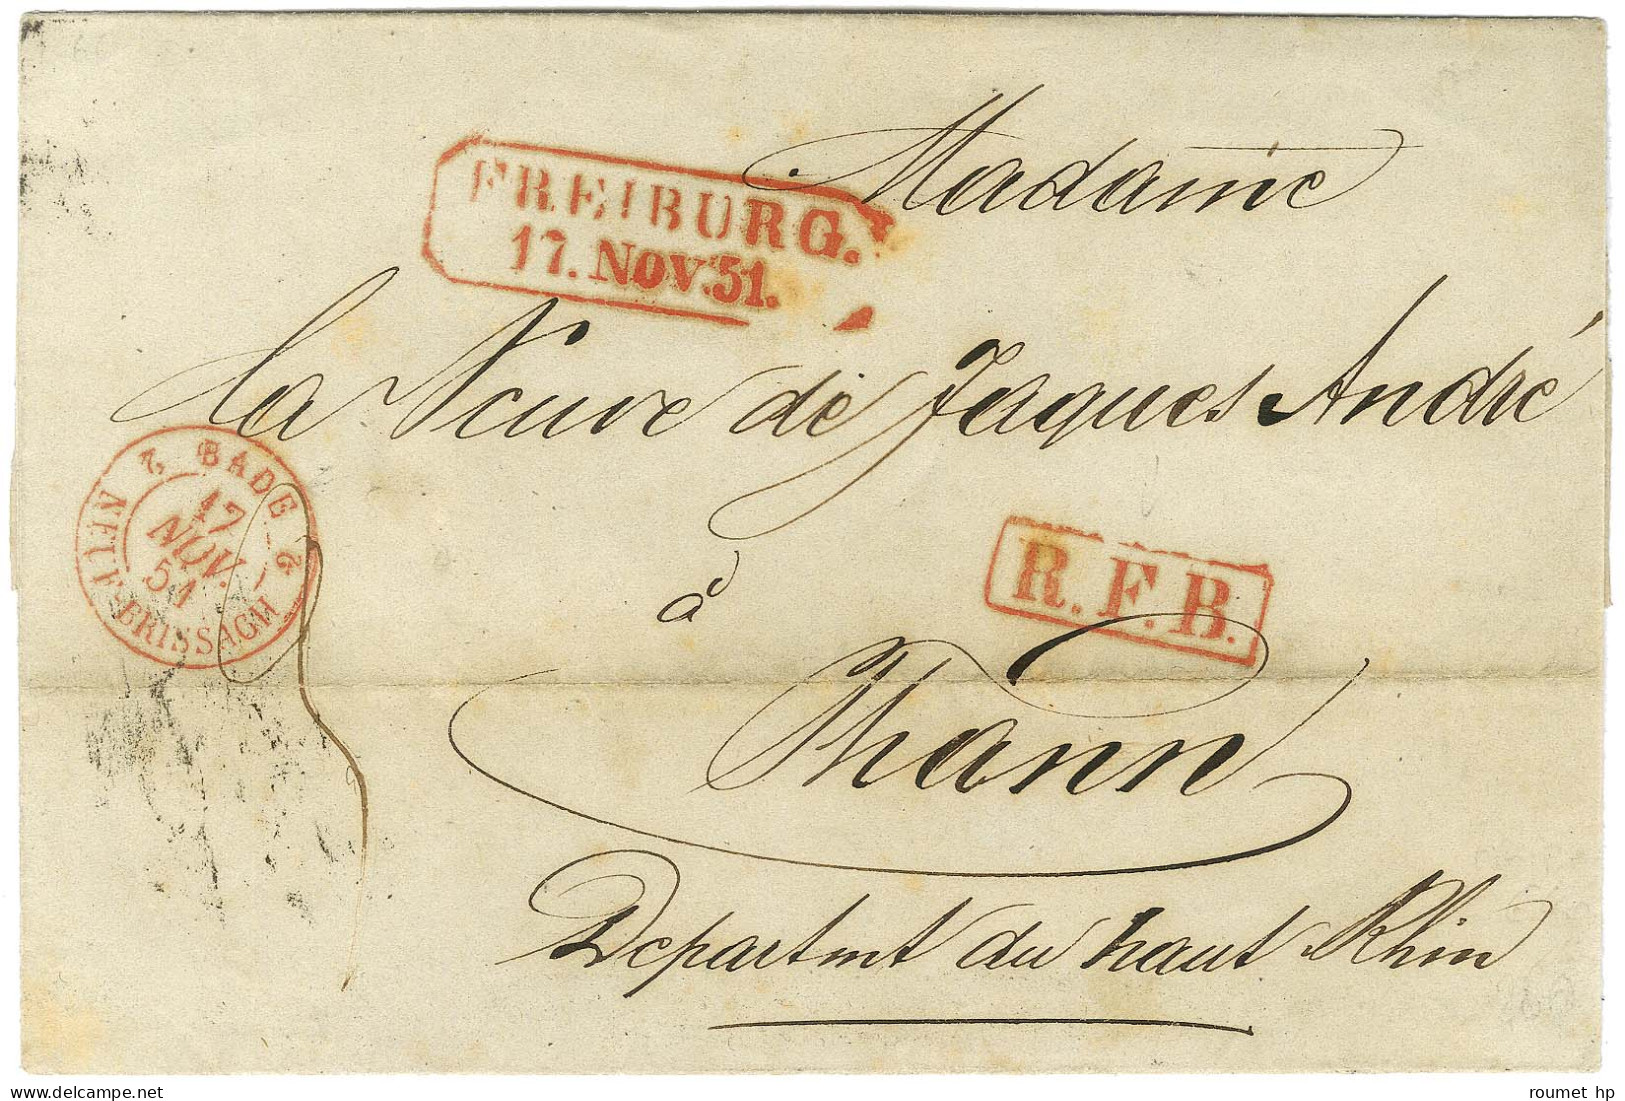 Madame
FREIBURG.
17. NOV. 51.
la Veuve de Jaques André
2 BADE 2
17
NOV.
51
NEUF-BRISSACH
R.F.B.
à
Thann
Departmt du haut Rhin
roumet hp